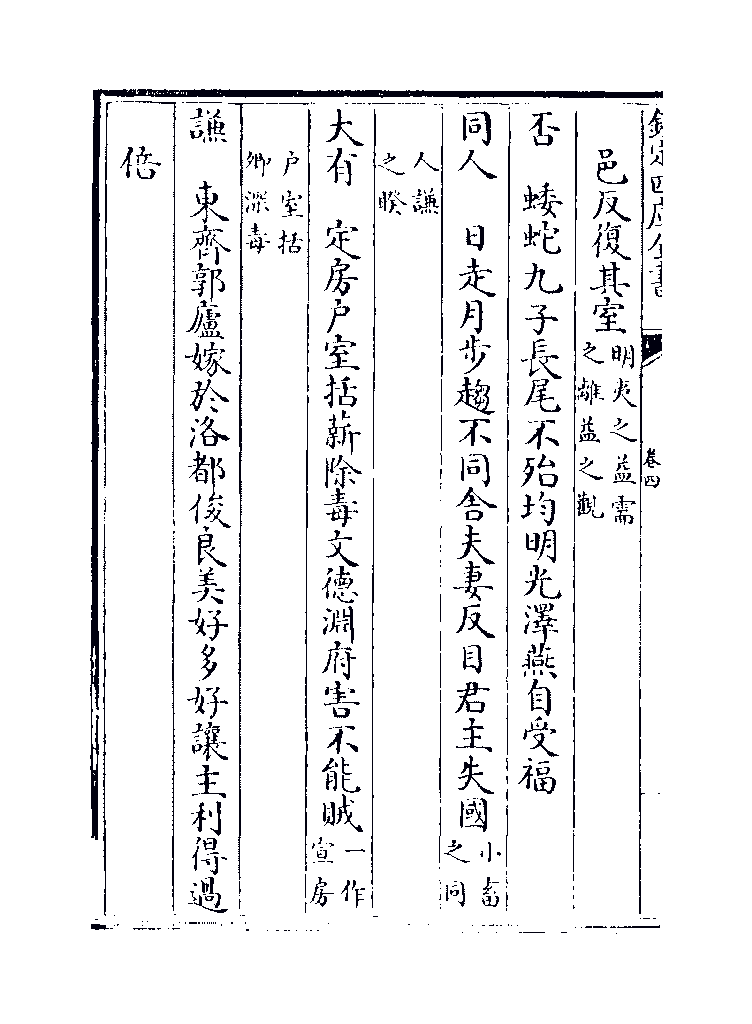 欽定四庫全書
卷四
邑反復其室明夷之益需
之離益之觀
否 蜲蛇九子長尾不殆均明光澤燕自受福
同人 日走月步趨不同舍夫妻反目君主失國小畜
之同
人謙
之睽
大有 定房户室括薪除毒文德淵府害不能賊一作
宣房
户室括
鄉深毒
謙 東齊郭廬嫁於洛都俊良美好多好讓主利得過
倍